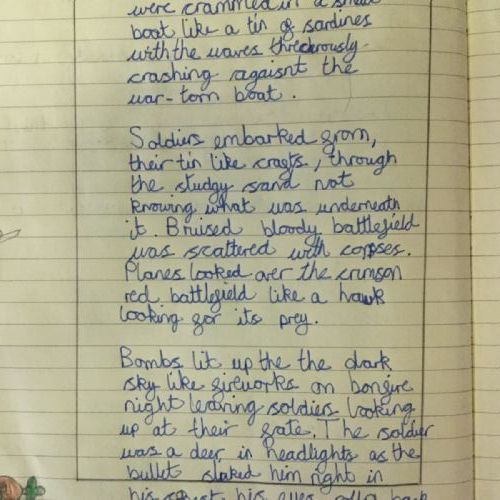 were crammed in a small
boat like a tin of sardines
with the waves threchrously
crashing agaisnt the
war-torn boat.
Soldiers embarked from,
their tin like cragts, through
the sludgy sand not
knowing what was underneath
it. Bruised bloody battlefield
was scattered with corpses.
Planes looked over the crimson
red battlefield like a hawk
looking for its prey.
Bombs lit up the the dark
sky like fireworks on bonfire
night leaving soldiers looking
up at their fate. The soldier
was a deer in headlights as the
bullet him right in
his his eyes